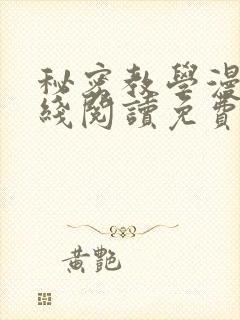 秘密教學漫
綫閱讀免費
黄艷